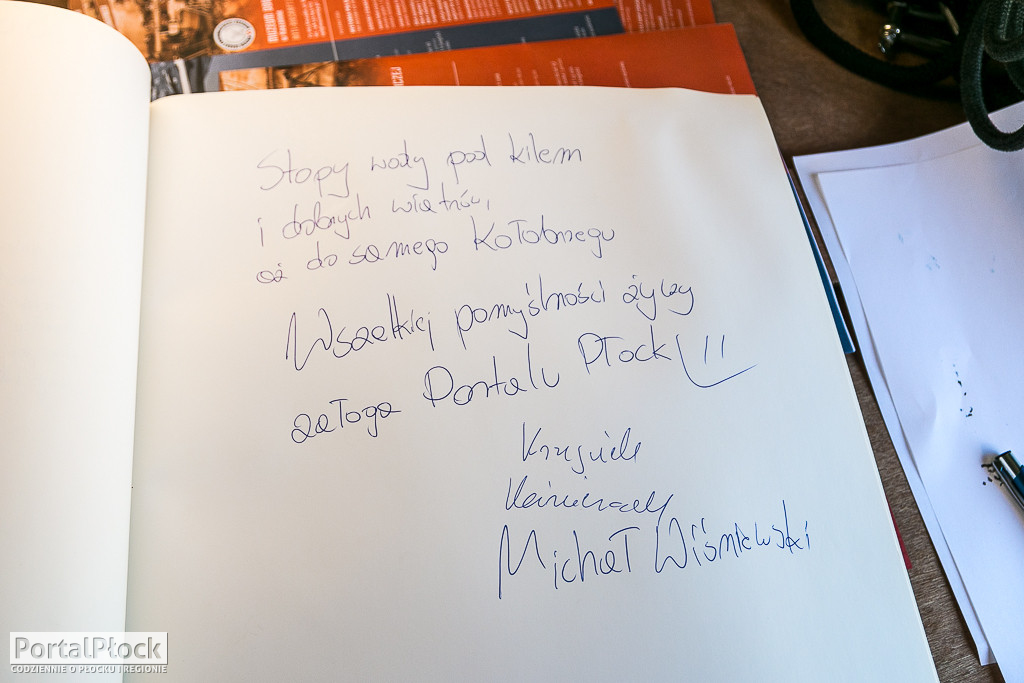 Stopy wody pod kilem
i dobrych wiatrów,
aż do samego Kołobrzegu
Wszelkiej pomyślności życzy
załoga Portalu Płock
Michał Wiśniewski
PortalPłock
CODZIENNIE O PŁOCKU I REGIONIE